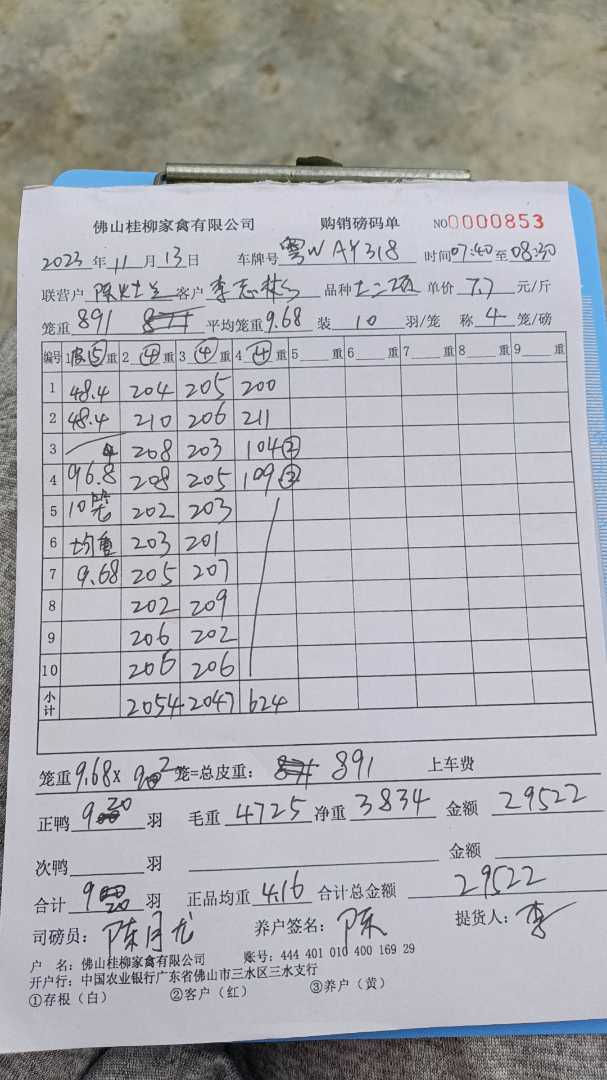 佛山桂柳家禽有限公司 购销磅码单 NO0000853
2023年11月13日 车牌号 粤W AY318 时间07:40至08:30
联营户 陈 客户 李志 品种 单价 7.7 元/斤
笼重 891 平均笼重 9.68 装 10 羽/笼 称 4 笼/磅
编号 1 皮⑤ 重 2 ④ 重 3 ④ 重 4 ④ 重 5 重 6 重 7 重 8 重 9 重
1 48.4 204 205 200
2 48.4 210 206 211
3 208 203 104②
4 96.8 208 205 109②
5 10笼 202 203
6 均重 203 201
7 9.68 205 207
8 202 209
9 206 202
10 206 206
小计 2054 2047 624
笼重 9.68× 92 笼=总皮重： 891 上车费
正鸭 920 羽 毛重 4725 净重 3834 金额 29522
次鸭 羽 金额
合计 920 羽 正品均重 4.16 合计总金额 29522
司磅员： 陈月龙 养户签名： 陈 提货人： 李
户 名：佛山桂柳家禽有限公司 账号：444 401 010 400 169 29
开户行：中国农业银行广东省佛山市三水区三水支行
①存根（白） ②客户（红） ③养户（黄）